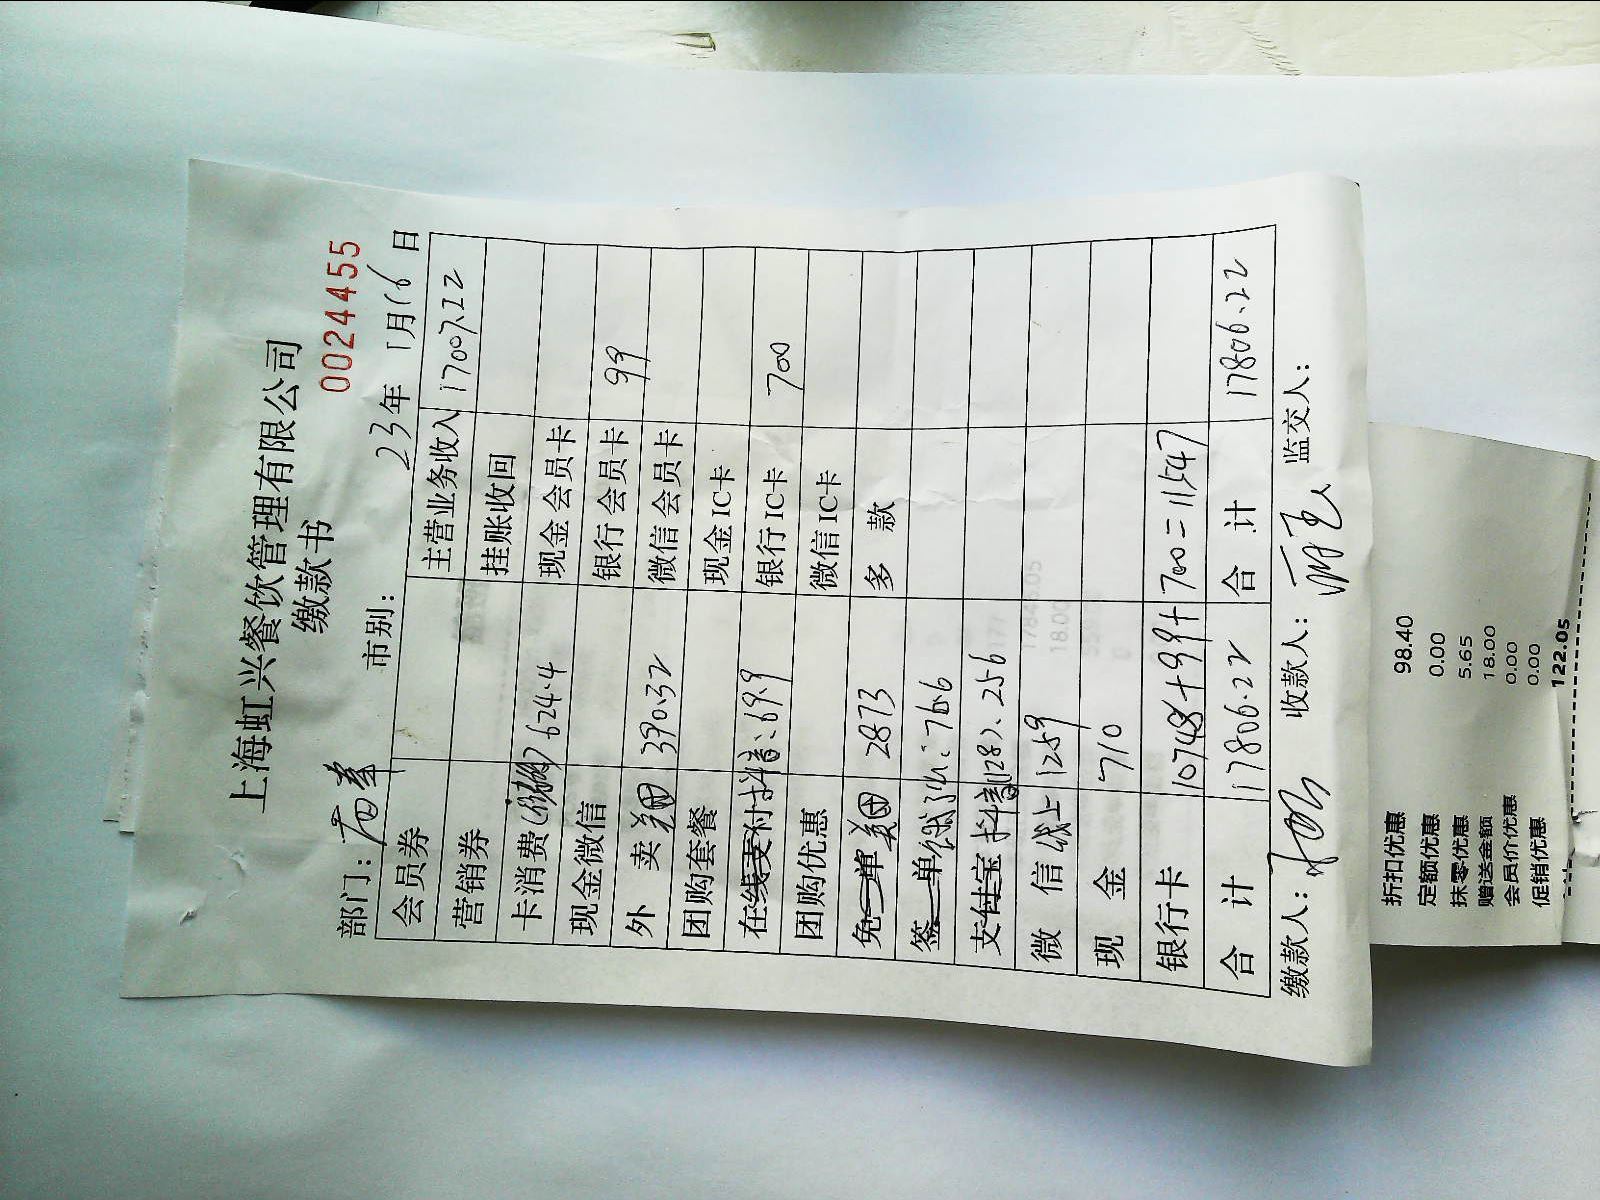 上海虹兴餐饮管理有限公司
缴款书
0024455
部门： 市别： 23年 1月16日
会员券 主营业务收入 17007.22
营销券 挂账收回
卡消费 624.4 现金会员卡
现金微信 银行会员卡 99
外 卖 美团 390.32 微信会员卡
团购套餐 现金IC卡
在线支付 抖音：69.9 银行IC卡 700
团购优惠 微信IC卡
免 单 美团 2873 多 款
签 单 76.6
支付宝 抖音 256
微 信 线上 1259
现 金 710
银行卡 10748+99+700=11547
合 计 17806.22 合 计 17806.22
缴款人： 收款人： 监交人：
折扣优惠 98.40
定额优惠 0.00
抹零优惠 5.65
赠送金额 18.00
会员价优惠 0.00
促销优惠 0.00
122.05